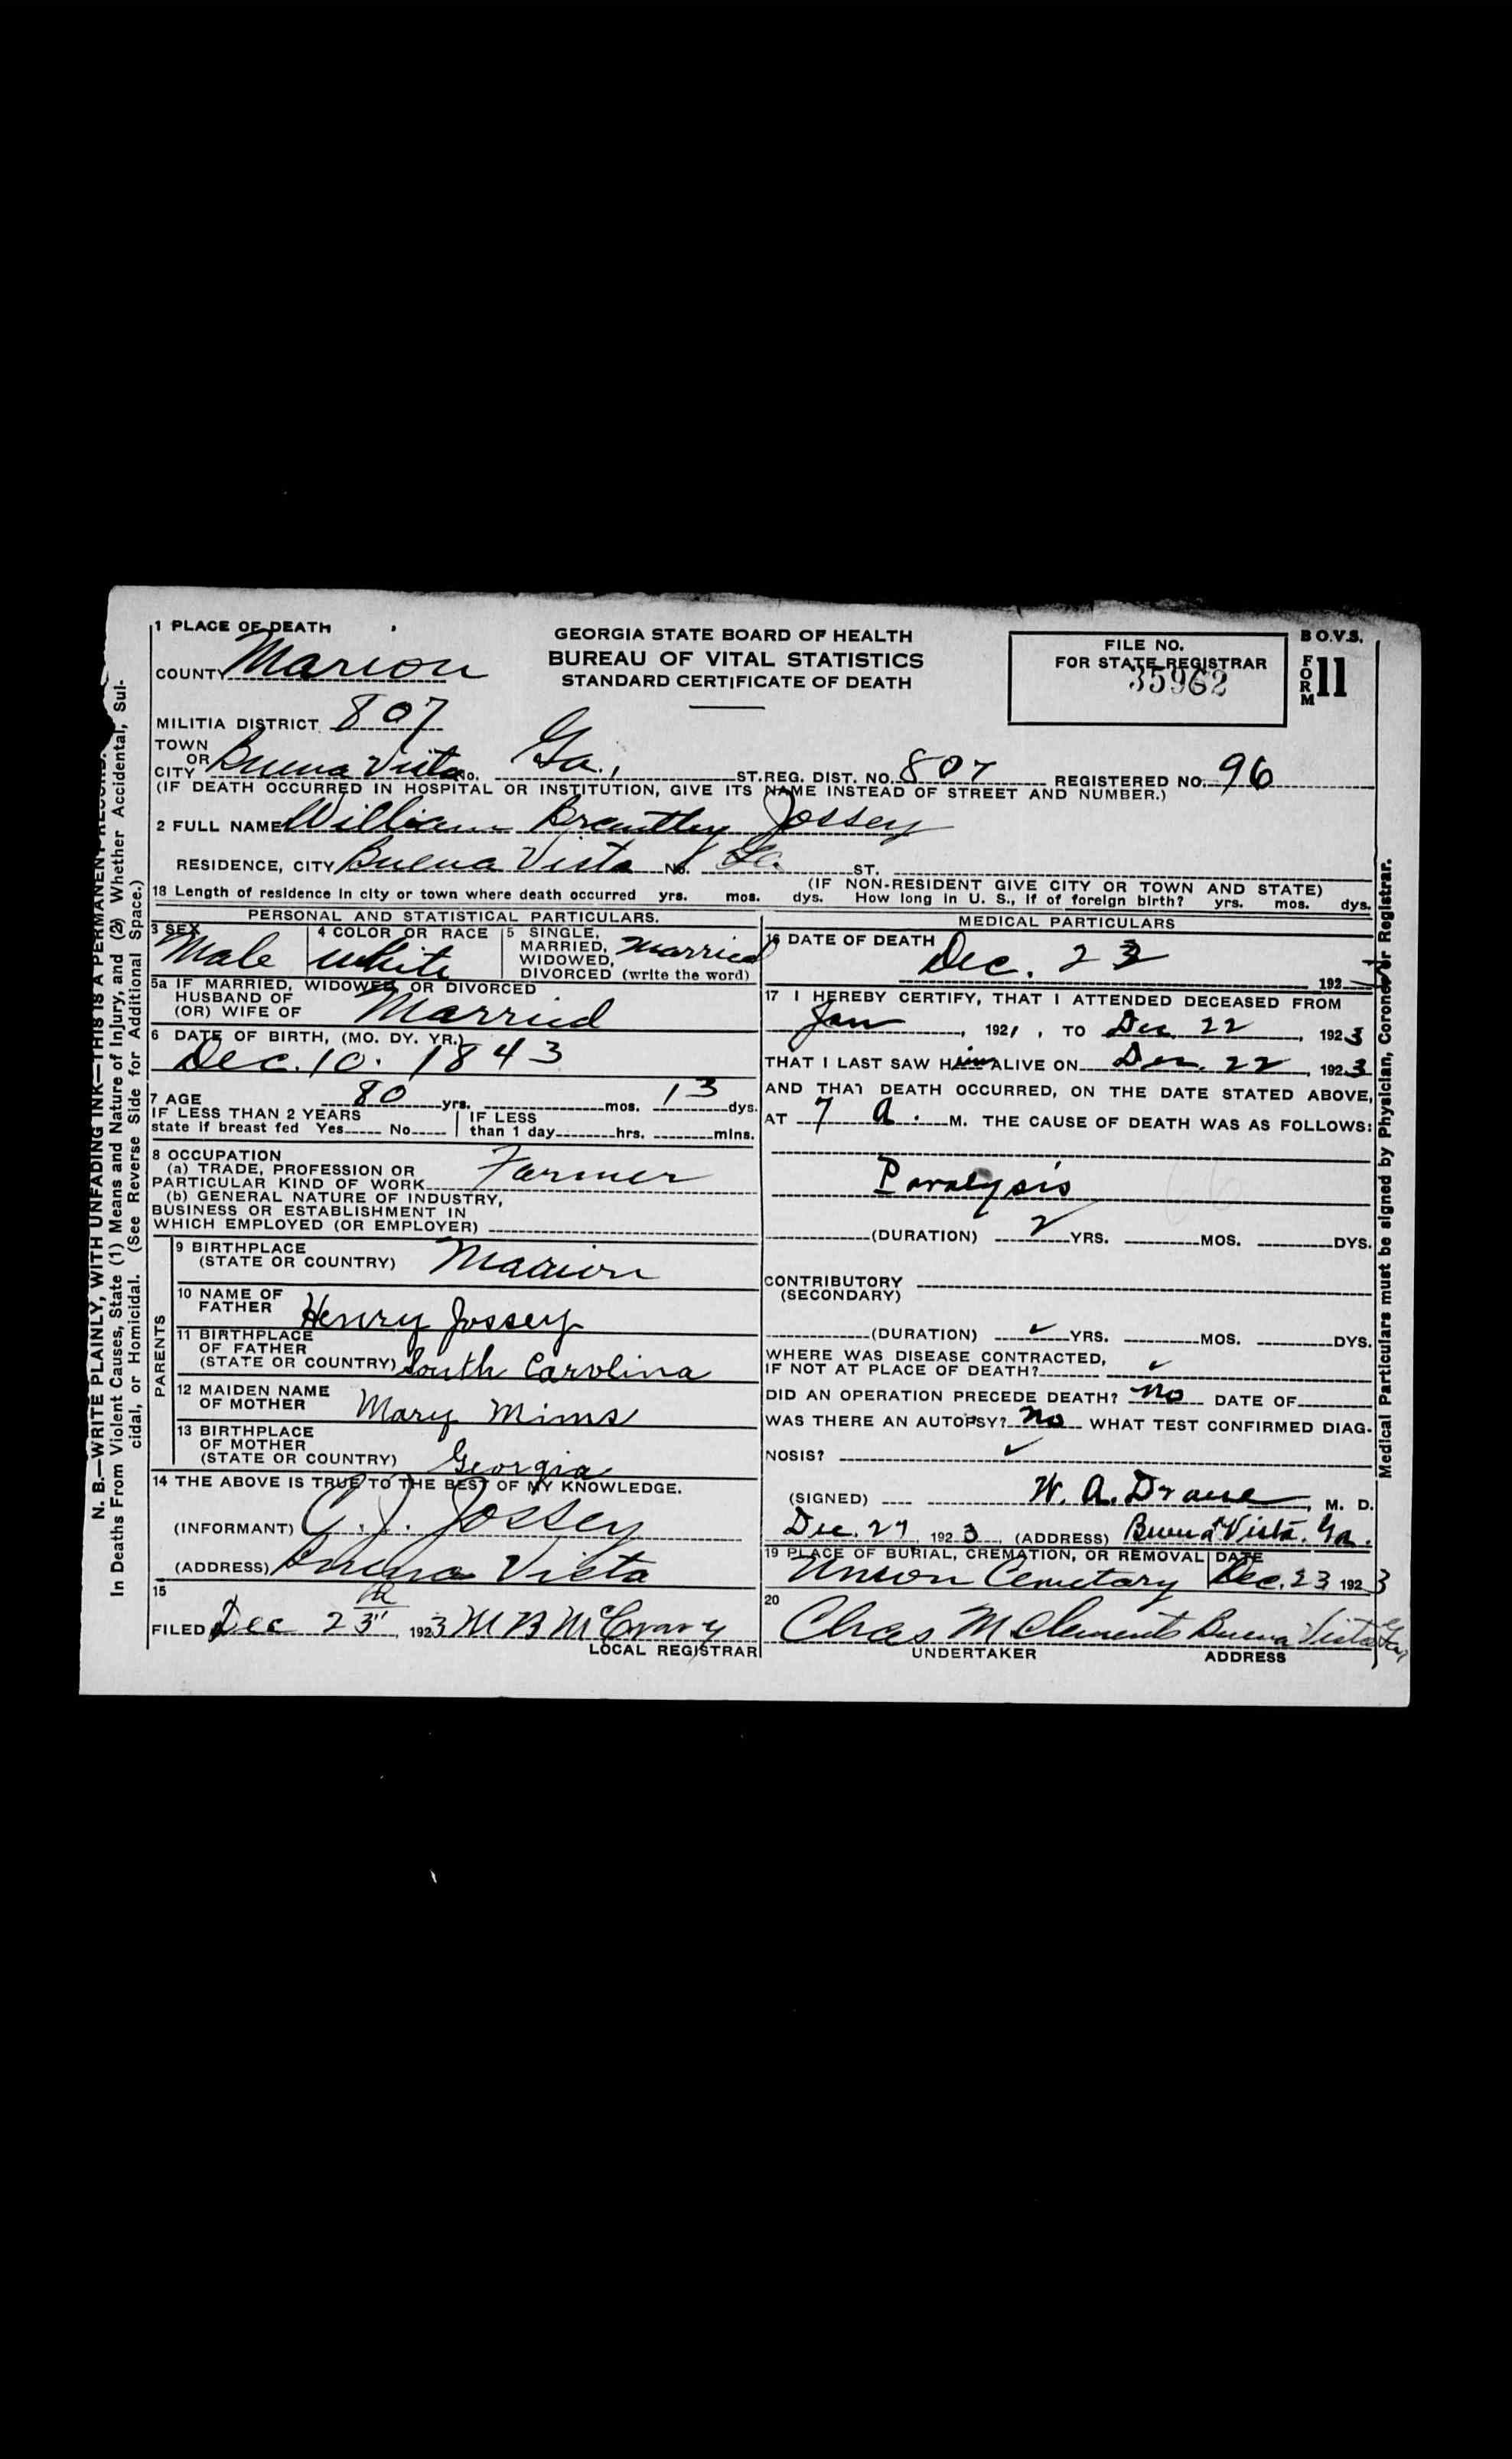 1 PLACE OF DEATH
COUNTY Marion
GEORGIA STATE BOARD OF HEALTH
BUREAU OF VITAL STATISTICS
STANDARD CERTIFICATE OF DEATH
FILE NO.
FOR STATE REGISTRAR
35962
B.O.V.S.
FORM 11
MILITIA DISTRICT 807
TOWN OR CITY Buena Vista No. Ga., ST. REG. DIST. NO. 807 REGISTERED NO. 96
(IF DEATH OCCURRED IN HOSPITAL OR INSTITUTION, GIVE ITS NAME INSTEAD OF STREET AND NUMBER.)
2 FULL NAME William Brantley Jossey
RESIDENCE, CITY Buena Vista No. Ga. ST.
(IF NON-RESIDENT GIVE CITY OR TOWN AND STATE)
18 Length of residence in city or town where death occurred yrs. mos. dys. How long in U. S., if of foreign birth? yrs. mos. dys.
PERSONAL AND STATISTICAL PARTICULARS.
3 SEX Male
4 COLOR OR RACE white
5 SINGLE, MARRIED, WIDOWED, DIVORCED (write the word) Married
5a IF MARRIED, WIDOWED OR DIVORCED
HUSBAND OF
(OR) WIFE OF Married
6 DATE OF BIRTH, (MO. DY. YR.)
Dec. 10. 1843
7 AGE 80 yrs. mos. 13 dys.
IF LESS THAN 2 YEARS
state if breast fed Yes No
IF LESS
than 1 day hrs. mins.
8 OCCUPATION
(a) TRADE, PROFESSION OR
PARTICULAR KIND OF WORK Farmer
(b) GENERAL NATURE OF INDUSTRY,
BUSINESS OR ESTABLISHMENT IN
WHICH EMPLOYED (OR EMPLOYER)
PARENTS
9 BIRTHPLACE
(STATE OR COUNTRY) Marion
10 NAME OF
FATHER Henry Jossey
11 BIRTHPLACE
OF FATHER
(STATE OR COUNTRY) South Carolina
12 MAIDEN NAME
OF MOTHER Mary Mims
13 BIRTHPLACE
OF MOTHER
(STATE OR COUNTRY) Georgia
14 THE ABOVE IS TRUE TO THE BEST OF MY KNOWLEDGE.
(INFORMANT) C. J. Jossey
(ADDRESS) Buena Vista
15
FILED Dec 23 1923 M B McCrary
LOCAL REGISTRAR
MEDICAL PARTICULARS
16 DATE OF DEATH
Dec. 23 192
17 I HEREBY CERTIFY, THAT I ATTENDED DECEASED FROM
Jan, 1921, TO Dec 22, 1923
THAT I LAST SAW Him ALIVE ON Dec. 22, 1923
AND THAT DEATH OCCURRED, ON THE DATE STATED ABOVE,
AT 7 a. M. THE CAUSE OF DEATH WAS AS FOLLOWS:
Paralysis
(DURATION) 2 YRS. MOS. DYS.
CONTRIBUTORY
(SECONDARY)
(DURATION) YRS. MOS. DYS.
WHERE WAS DISEASE CONTRACTED,
IF NOT AT PLACE OF DEATH?
DID AN OPERATION PRECEDE DEATH? no DATE OF
WAS THERE AN AUTOPSY? no WHAT TEST CONFIRMED DIAG-
NOSIS?
(SIGNED) W. A. Drane, M. D.
Dec. 27, 1923, (ADDRESS) Buena Vista. Ga.
19 PLACE OF BURIAL, CREMATION, OR REMOVAL DATE
Union Cemetary Dec. 23 1923
20
Chas M Clements Buena Vista Ga
UNDERTAKER ADDRESS
N. B.—WRITE PLAINLY, WITH UNFADING INK—THIS IS A PERMANENT RECORD.
In Deaths From Violent Causes, State (1) Means and Nature of Injury, and (2) Whether Accidental, Sui-
cidal, or Homicidal. (See Reverse Side for Additional Space.)
Medical Particulars must be signed by Physician, Coroner or Registrar.